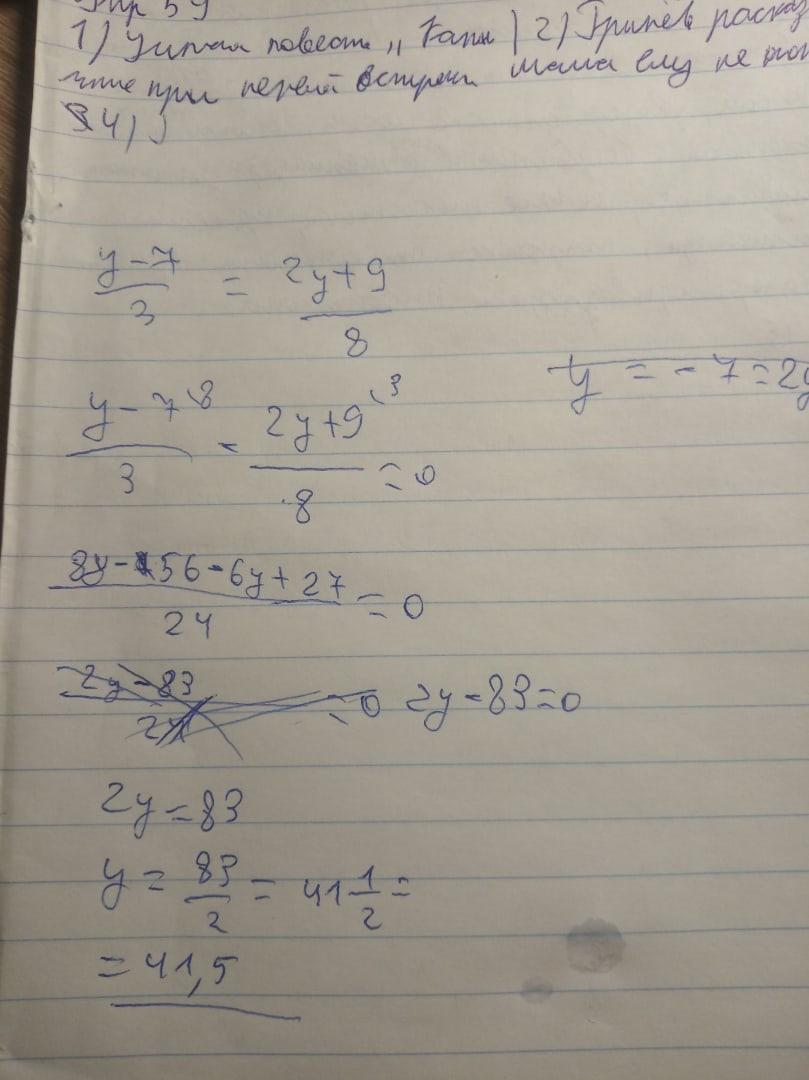 1) Читая повесть „ Капи | 2) Гринёв
при первой встречи мама ему не
4)
y-7/3 = 2y+9/8
y = - 7 = 2y
y-7\8/3 - 2y+9\3/8 = 0
8y-56-6y+27/24 = 0
2y-83/24 = 0 2y-83=0
2y=83
y = 83/2 = 41 1/2 =
= 41,5